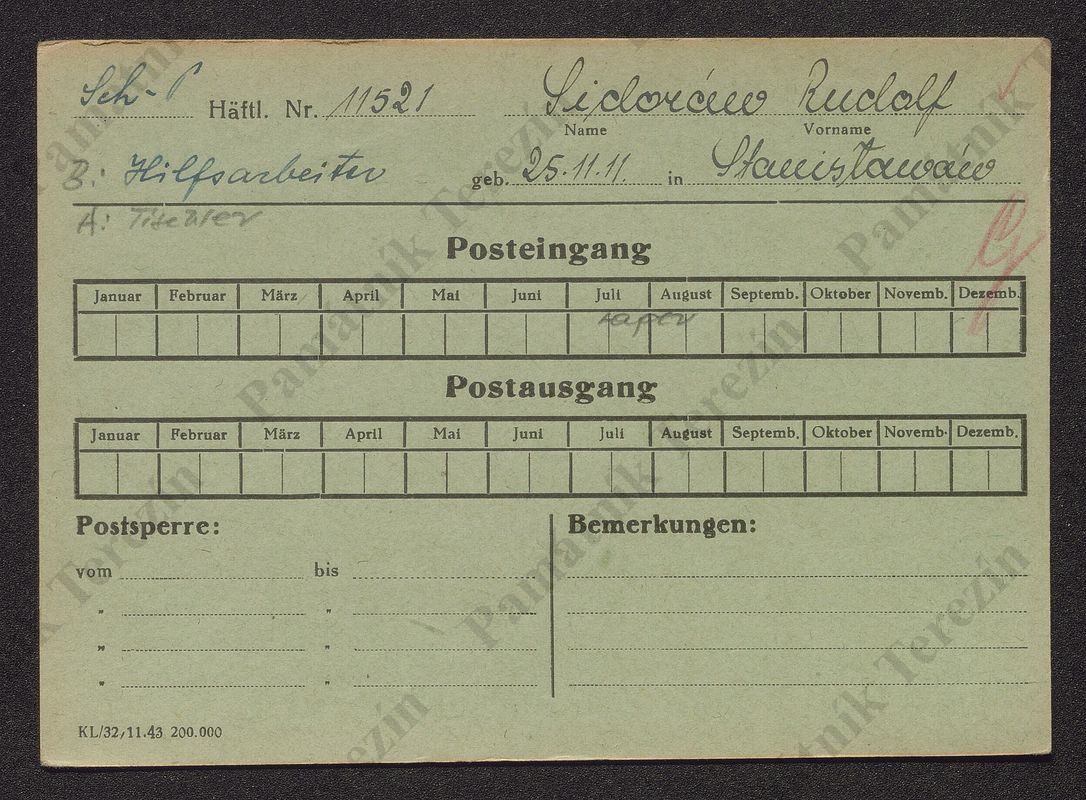 Sch-P Häftl. Nr. 11521 Sidorów Rudolf
Name Vorname
B: Hilfsarbeiter geb. 25.11.11. in Stanisławów
A: Tischler
Posteingang
Januar Februar März April Mai Juni Juli August Septemb. Oktober Novemb. Dezemb.
Postausgang
Januar Februar März April Mai Juni Juli August Septemb. Oktober Novemb. Dezemb.
Postsperre: Bemerkungen:
vom bis
" "
" "
" "
KL/32, 11.43 200.000
Památník Terezín